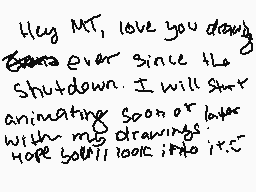 Hey MT, love you drawing
ever since the
shutdown. I will start
animating soon or later
with my drawings.
Hope you'll look into it.